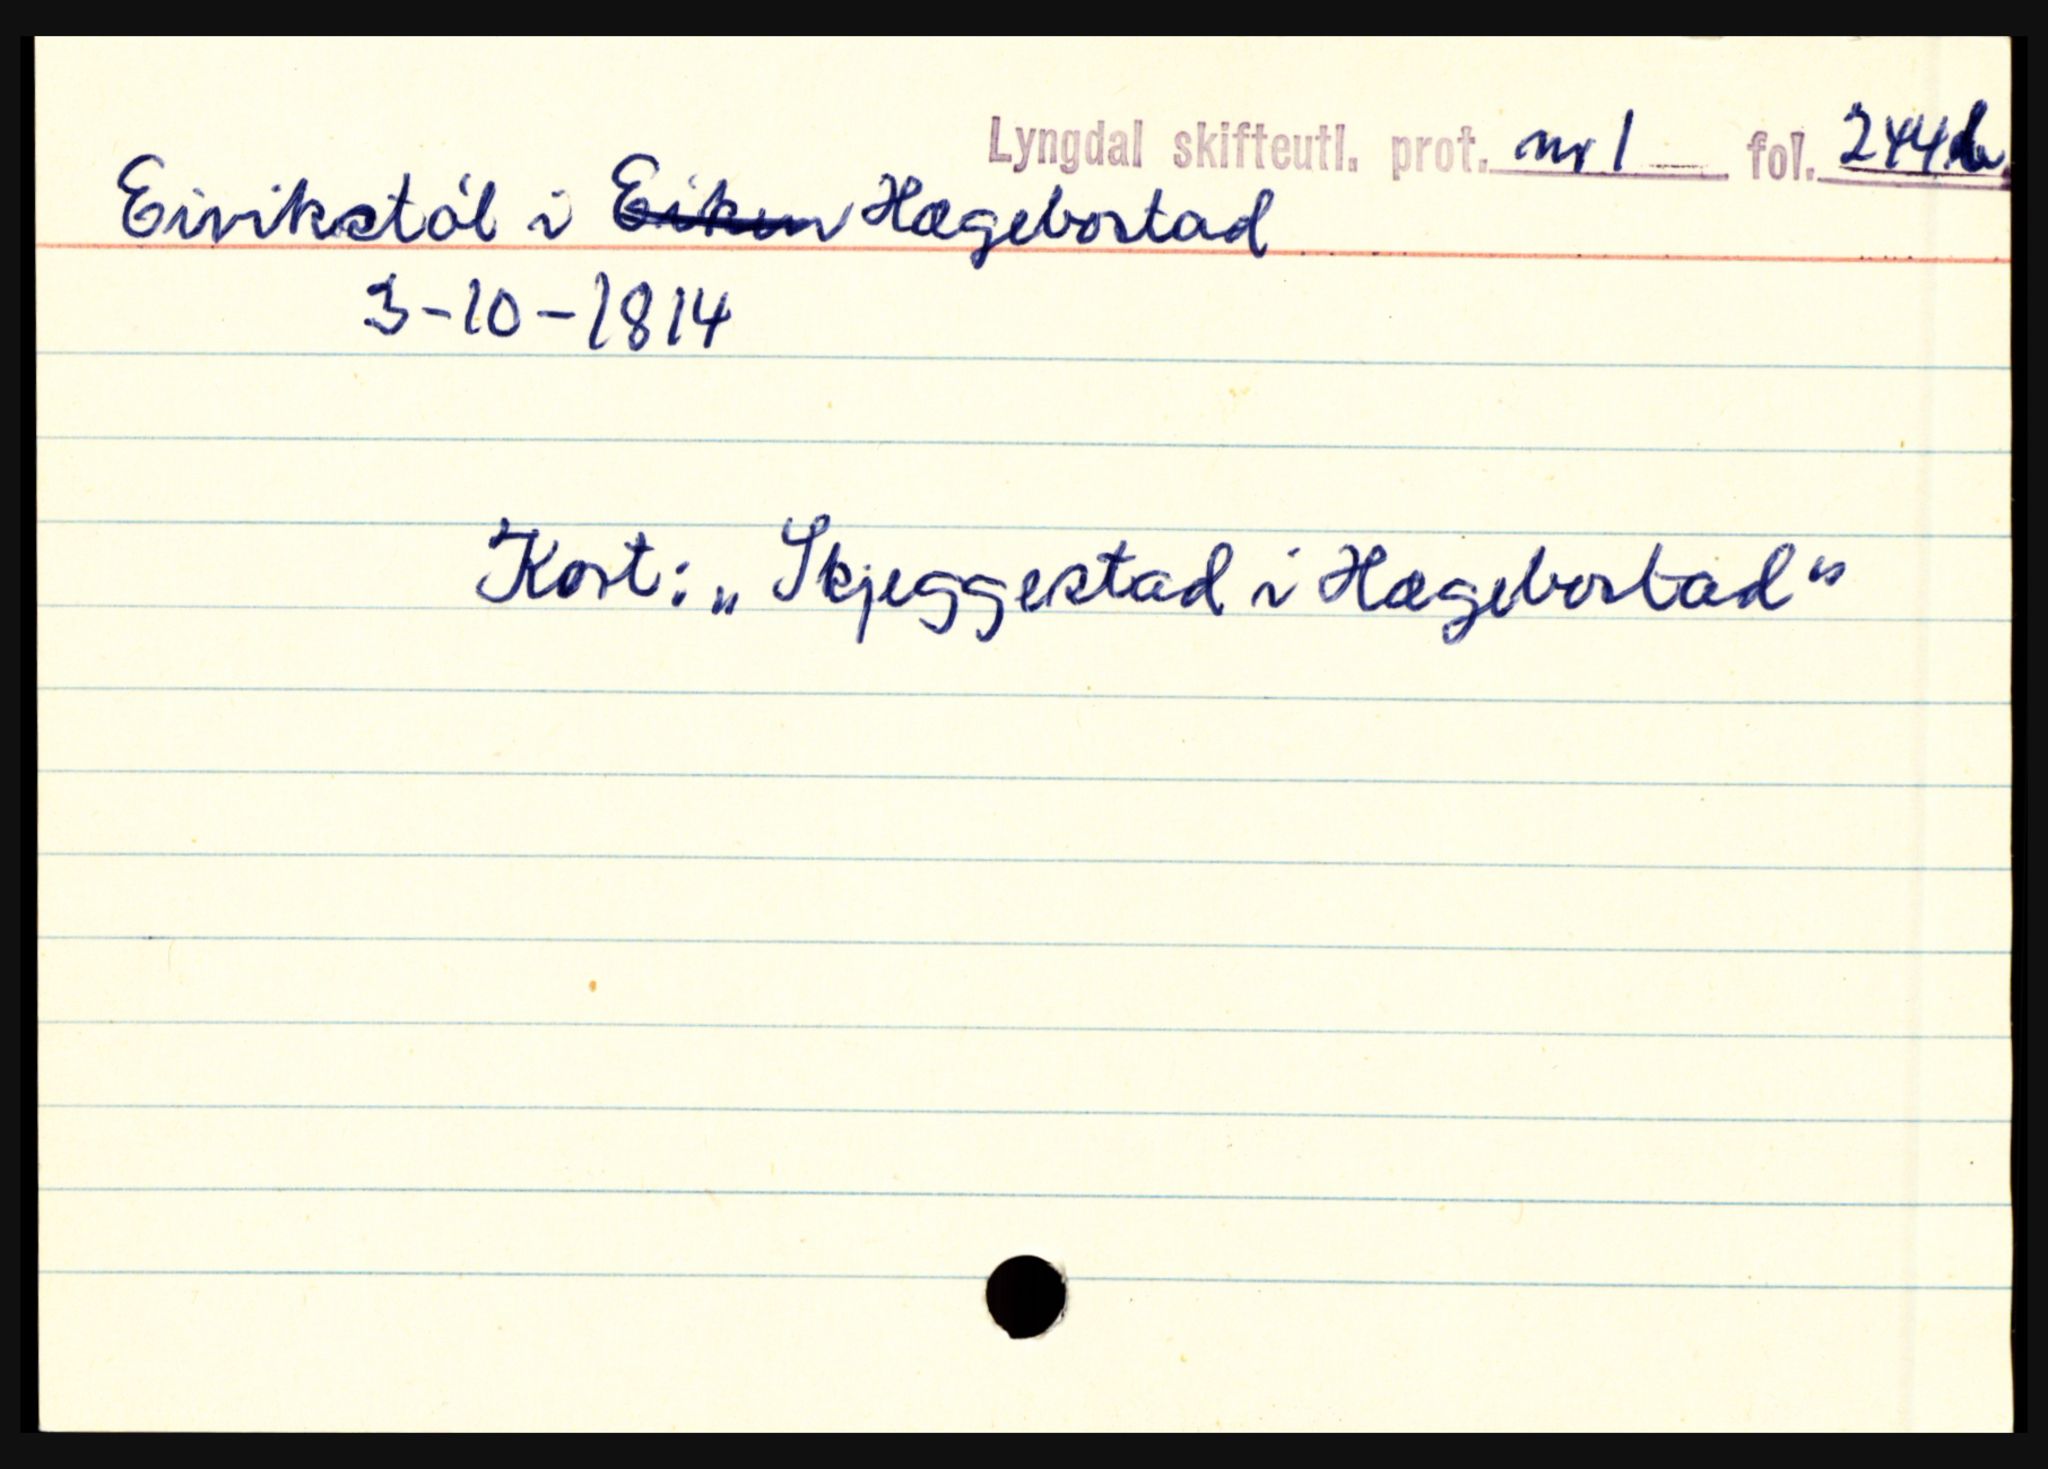 Lyngdal skifteutl. prot. nr 1 fol. 244b
Eivikstøl i ~~Eiken~~ Hægebostad
3-10-1814
Kort: „Skjeggestad i Hægebostad"